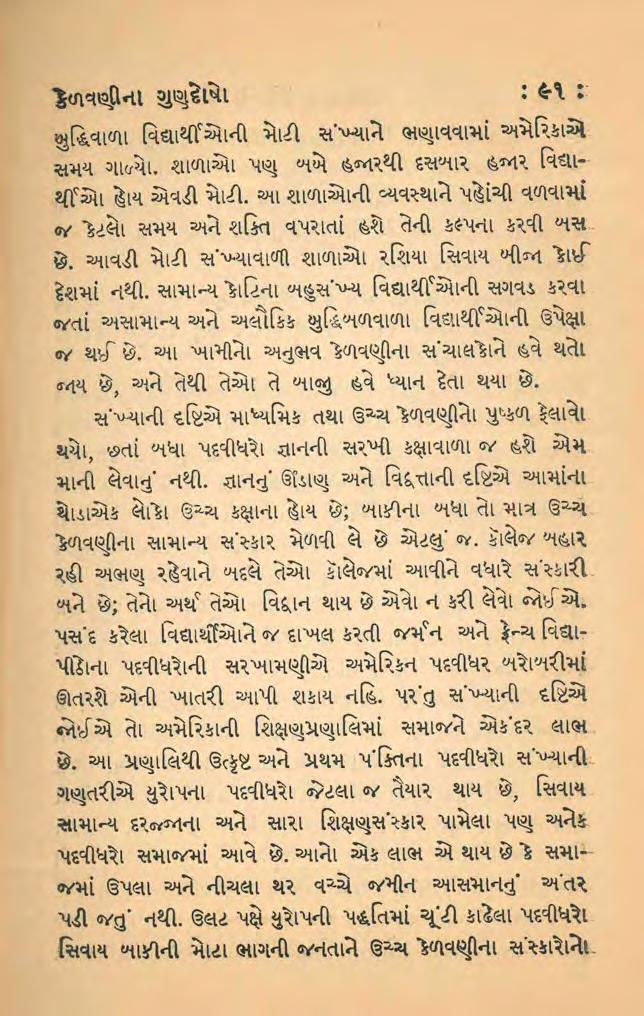 કેળવણીના ગુણદોષો : ૯૧ :
બુદ્ધિવાળા વિદ્યાર્થીઓની મોટી સંખ્યાને ભણાવવામાં અમેરિકાએ
સમય ગાળ્યો. શાળાઓ પણ બબે હજારથી દસબાર હજાર વિદ્યા-
ર્થીઓ હોય એવડી મોટી. આ શાળાઓની વ્યવસ્થાને પહોંચી વળવામાં
જ કેટલો સમય અને શક્તિ વપરાતાં હશે તેની કલ્પના કરવી બસ
છે. આવડી મોટી સંખ્યાવાળી શાળાઓ રશિયા સિવાય બીજા કોઈ
દેશમાં નથી. સામાન્ય કોટિના બહુસંખ્ય વિદ્યાર્થીઓની સગવડ કરવા
જતાં અસામાન્ય અને અલૌકિક બુદ્ધિબળવાળા વિદ્યાર્થીઓની ઉપેક્ષા
જ થઈ છે. આ ખામીનો અનુભવ કેળવણીના સંચાલકોને હવે થતો
જાય છે, અને તેથી તેઓ તે બાજુ હવે ધ્યાન દેતા થયા છે.
સંખ્યાની દૃષ્ટિએ માધ્યમિક તથા ઉચ્ચ કેળવણીનો પુષ્કળ ફેલાવો
થયો, છતાં બધા પદવીધરો જ્ઞાનની સરખી કક્ષાવાળા જ હશે એમ
માની લેવાનું નથી. જ્ઞાનનું ઊંડાણ અને વિદ્વત્તાની દૃષ્ટિએ આમાંના
થોડાએક લોકો ઉચ્ચ કક્ષાના હોય છે; બાકીના બધા તો માત્ર ઉચ્ચ
કેળવણીના સામાન્ય સંસ્કાર મેળવી લે છે એટલું જ. કૉલેજ બહાર
રહી અભણ રહેવાને બદલે તેઓ કૉલેજમાં આવીને વધારે સંસ્કારી
બને છે; તેનો અર્થ તેઓ વિદ્વાન થાય છે એવો ન કરી લેવો જોઈએ.
પસંદ કરેલા વિદ્યાર્થીઓને જ દાખલ કરતી જર્મન અને ફ્રેન્ચ વિદ્યા-
પીઠોના પદવીધરોની સરખામણીએ અમેરિકન પદવીધર બરોબરીમાં
ઊતરશે એની ખાતરી આપી શકાય નહિ. પરંતુ સંખ્યાની દૃષ્ટિએ
જોઈએ તો અમેરિકાની શિક્ષણપ્રણાલિમાં સમાજને એકંદર લાભ
છે. આ પ્રણાલિથી ઉત્કૃષ્ટ અને પ્રથમ પંક્તિના પદવીધરો સંખ્યાની
ગણતરીએ યુરોપના પદવીધરો જેટલા જ તૈયાર થાય છે, સિવાય
સામાન્ય દરજ્જાના અને સારા શિક્ષણસંસ્કાર પામેલા પણ અનેક
પદવીધરો સમાજમાં આવે છે. આનો એક લાભ એ થાય છે કે સમા-
જમાં ઉપલા અને નીચલા થર વચ્ચે જમીન આસમાનનું અંતર
પડી જતું નથી. ઉલટ પક્ષે યુરોપની પદ્ધતિમાં ચૂંટી કાઢેલા પદવીધરો
સિવાય બાકીની મોટા ભાગની જનતાને ઉચ્ચ કેળવણીના સંસ્કારોનો